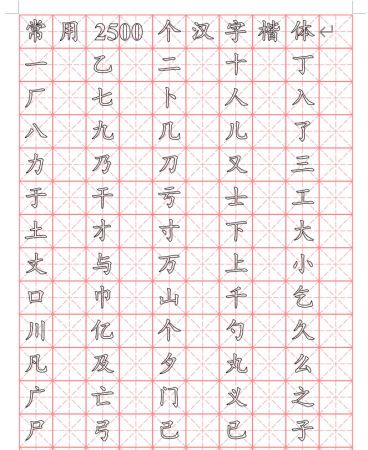 常用2500个汉字楷体
一 乙 二 十 丁
厂 七 卜 人 入
八 九 几 儿 了
力 乃 刀 又 三
于 干 亏 士 工
土 才 寸 下 大
丈 与 万 上 小
口 巾 山 千 乞
川 亿 个 勺 久
凡 及 夕 丸 么
广 亡 门 义 之
尸 弓 己 已 子